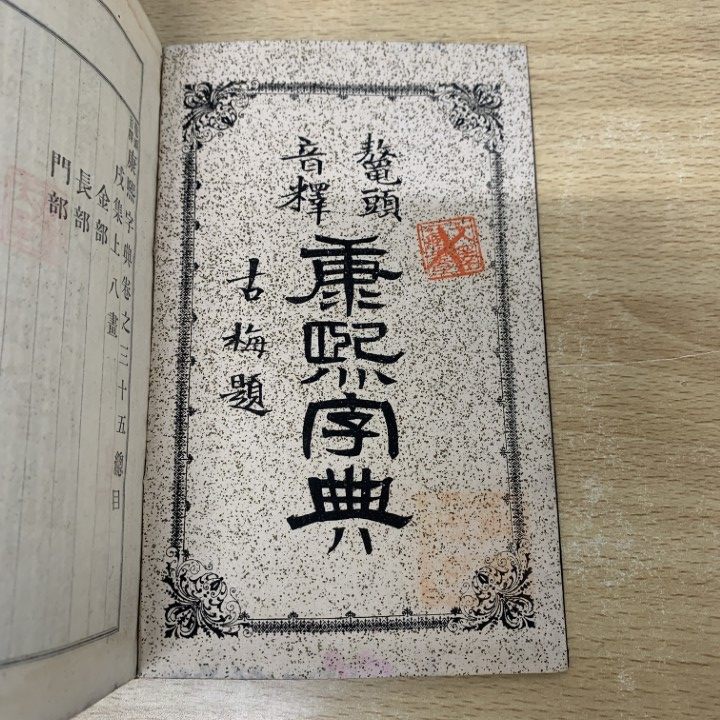 鼇頭
音釋
康熙字典
古梅題
康熙字典卷之三十五總目
戌集上八畫
金部
長部
門部